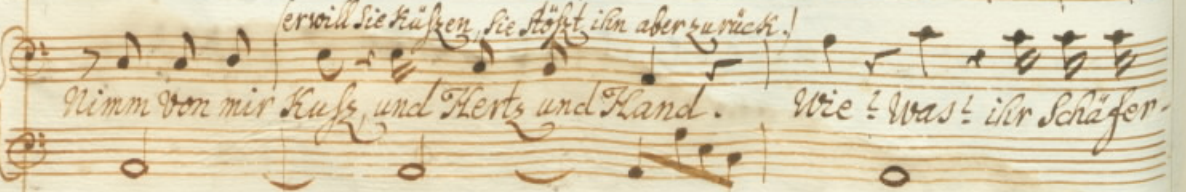 (er will Sie Küßen, Sie stößt ihn aber zurück.)
Nimm von mir Kuß, und Hertz und Hand. Wie? Was? ihr Schäfer-